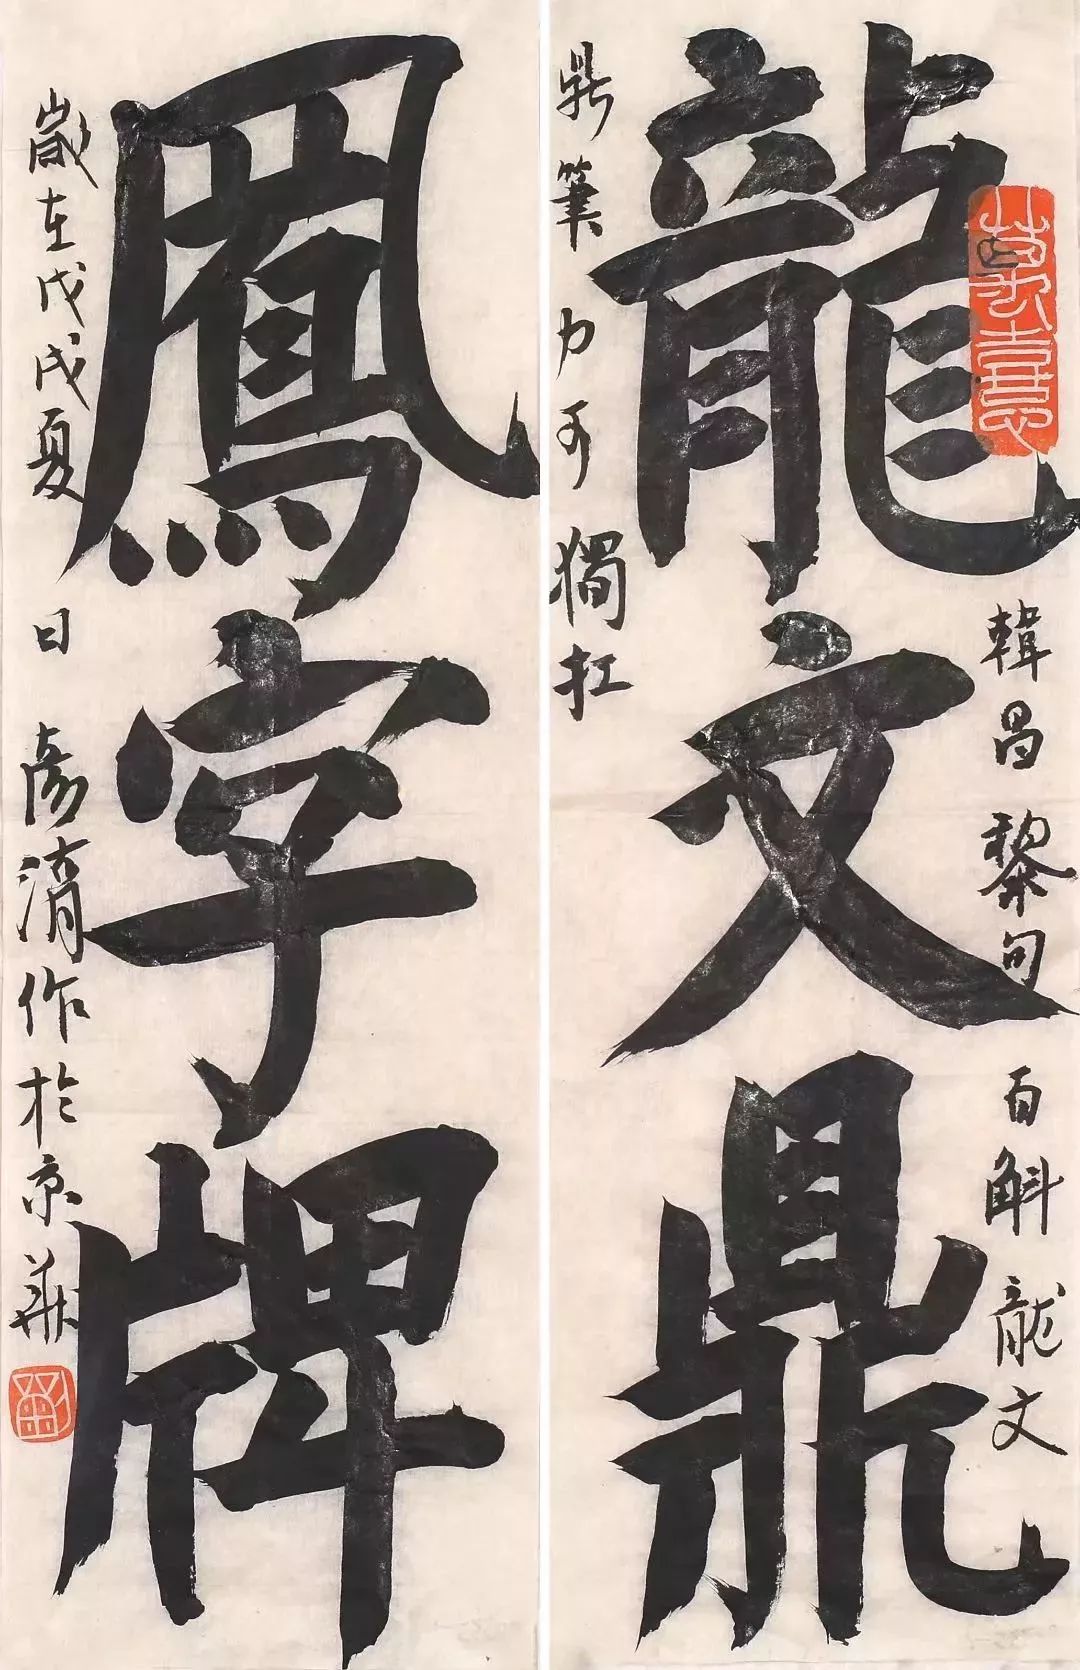 龍文鼎
韓昌黎句百斛龍文
鼎筆力可獨扛
鳳字牌
歲在戊戌夏日彥湑作於京華